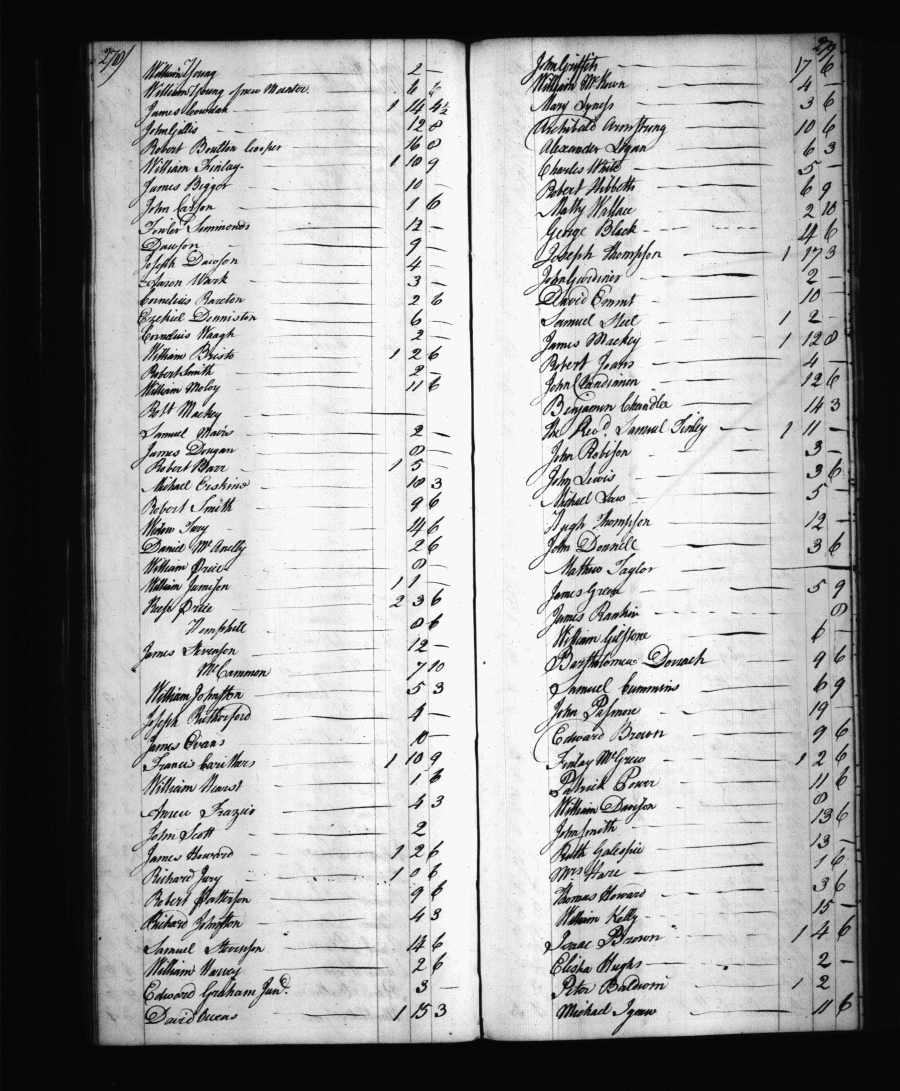 278
William Young 2 –
William Young 6 6
James Cowdan 1 14 4½
John Gillis 12 8
Robert Boulton Cooper 16 8
William Finlay 1 10 9
James Bigger 10 –
John Carson 1 6
Fowler Simmonds 12 –
Dawson 9 –
Joseph Dawson 4 –
Aaron Work 3 –
Cornelius 2 6
Ezekiel Denniston 6 –
Cornelius Waugh 2 –
William Bristo 1 2 6
Robert Smith 2 –
William Moloy 11 6
Robt Mackey
Samuel Maire 2 –
James Dougan 8 –
Robert Barr 1 5 –
Michael Erskine 10 3
Robert Smith 9 6
Widow Jury 4 6
Daniel McAnelly 2 6
William Price 8 –
William Jamison 1 1 –
Reese Price 2 3 6
Hemphill 8 6
James Stevenson 12 –
McCammon 7 10
William Johnston 5 3
Joseph Rutherford 4 –
James Evans 10 –
Francis Carithers 1 10 9
William 1 6
Andrew Frazier 4 3
John Scott 2
James Howard 1 2 6
Richard Jury 1 0 6
Robert Patterson 9 6
Richard Johnston 4 3
Samuel Stevenson 14 6
William 2 6
Edward Graham Junr. 3 –
David Owens 1 15 3
279
John Griffith 17 6
William McKown 4 –
Mary Lyness 3 6
Archibald Armstrong 10 6
Alexander Logan 6 3
Charles White 5 –
Robert Hibbetts 6 9
Matty Wallace 2 10
George Black 4 6
Joseph Thompson 1 17 3
John Gardiner 2 –
David Emmt 10 –
Samuel Steel 1 2 –
James Mackey 1 12 8
Robert Joans 4 –
John Clandinnin 12 6
Benjamin Chandler 14 3
The Revd. Samuel Finley 1 11 –
John Robison 3 –
John Lewis 3 6
Michael Law 5 –
Hugh Thompson 12 –
John Donnell 3 6
Mathew Taylor
James Green 5 9
James Rankin 8
William Gilstone 6 –
Bartholomew 9 6
Samuel Cummins 6 9
John Pasmore 19 –
Edward Brown 9 6
Finlay McGrew 1 2 6
Patrick Power 11 6
William Davison 8 –
John Smith 13 6
Ruth Galespie 13 –
Mrs Hare 1 6
Thomas Howard 3 6
William Kelly 15 –
Isaac Brown 1 4 6
Elisha Hughs 2 –
Peter Baldwin 1 2
Michael 11 6